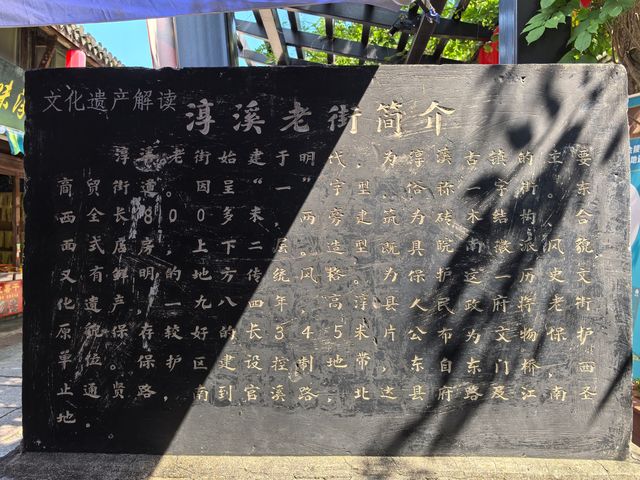 文化遗产解读
淳溪老街简介
淳溪老街始建于明代,为淳溪古镇的主要
商贸街道。因呈“一”字型,俗称一字街。东
西全长800多米,两旁建筑为砖木结构,合
面式店房,上下二层。造型既具皖南徽派风貌
又有鲜明的地方传统风格。为保护这一历史文
化遗产,一九八四年,高淳县人民政府将老街
原貌保存较好的长345米片公布为文物保护
单位。保护区建设控制地带,东自东门桥,西
止通贤路,南到官溪路,北达县府路及江南圣
地。